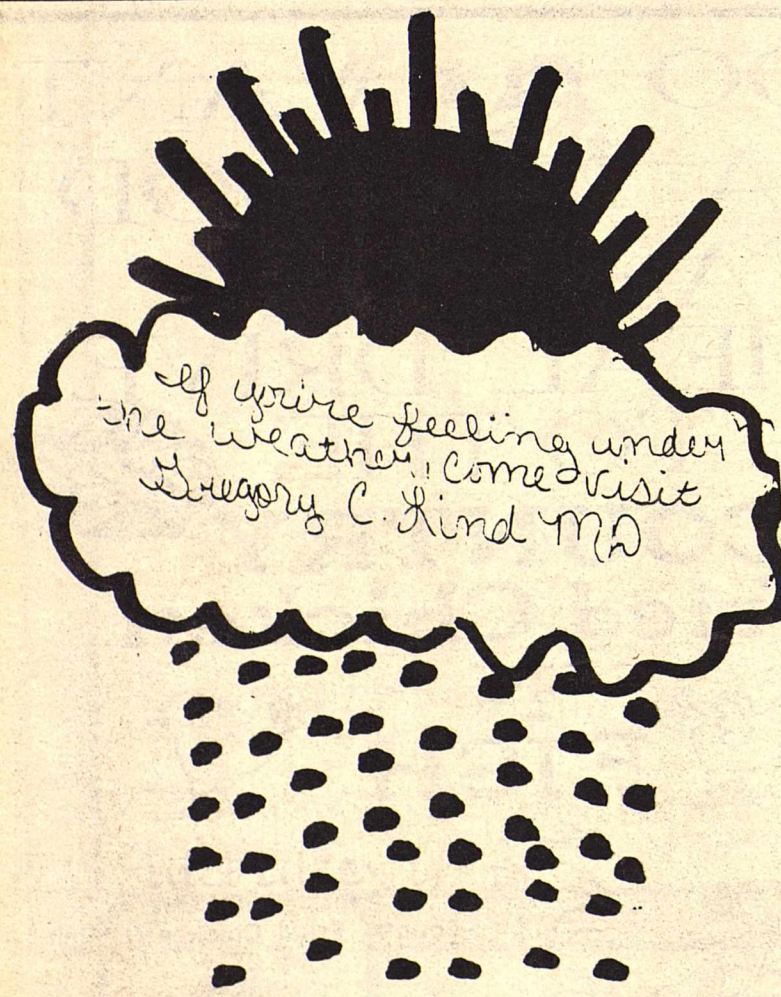 If you're feeling under
the weather, come visit
Gregory C. Kind MD